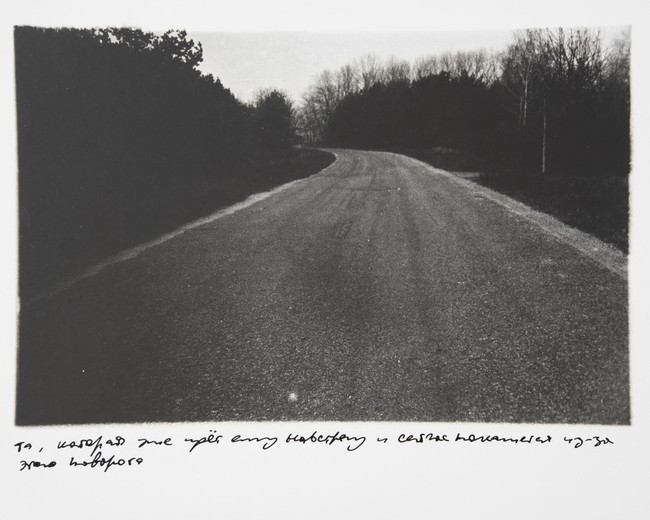 та, которая уже идёт ему навстречу и сейчас покажется из-за
этого поворота